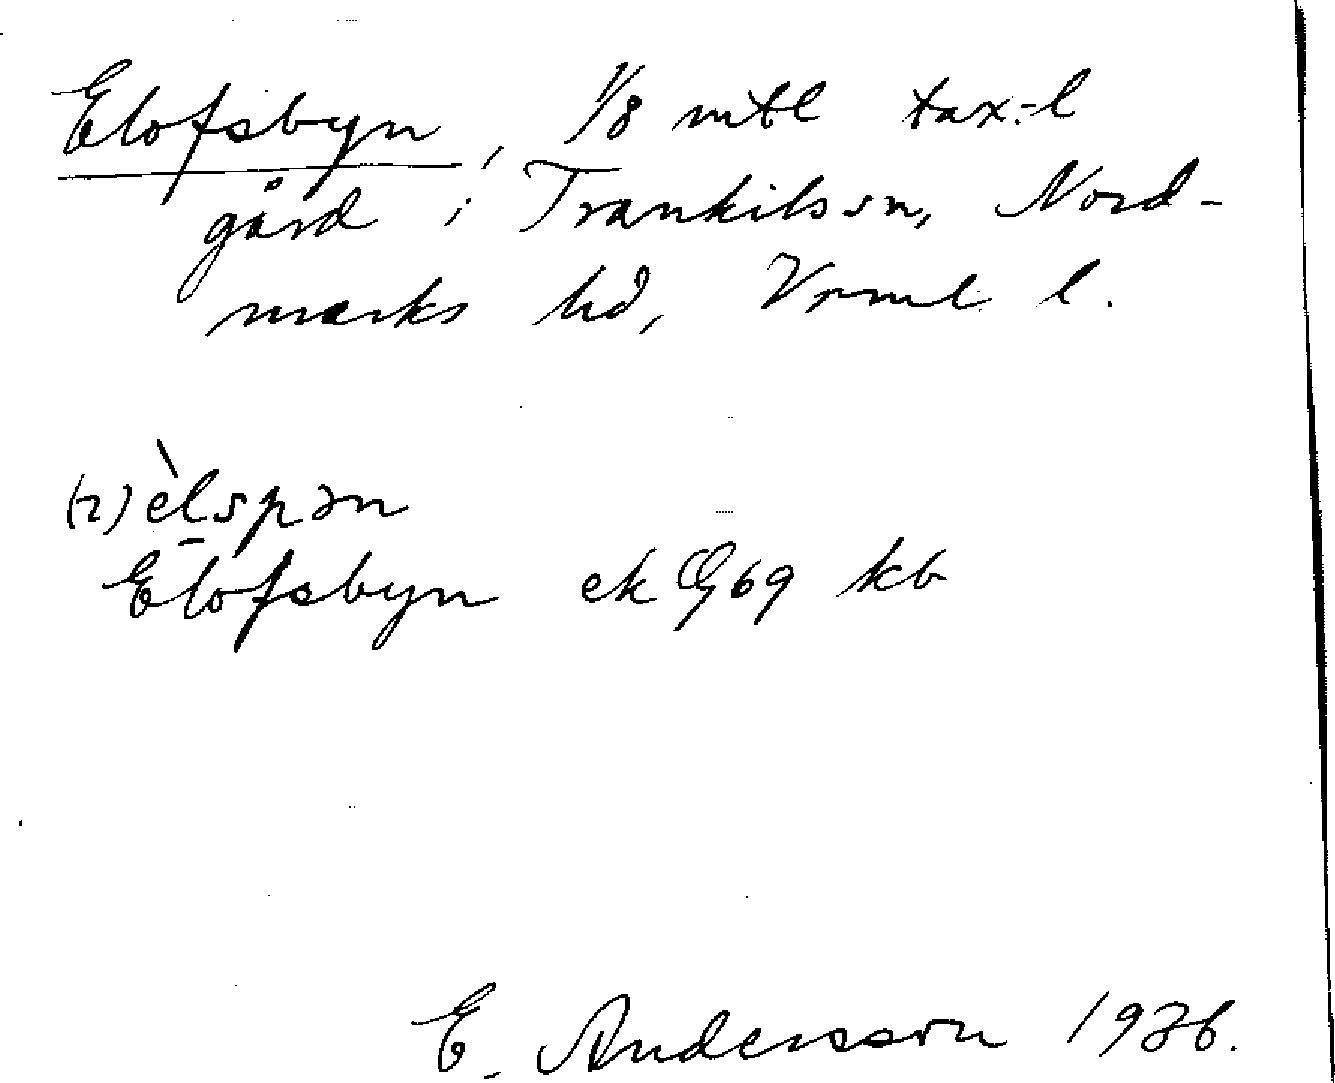 Elofsbyn, 1/8 mtl tax:l
gård i Trankils sn, Nord-
marks hd, Vrml l.
(2) èlspən
Elofsbyn ek G69 kb
E. Andersson 1936.